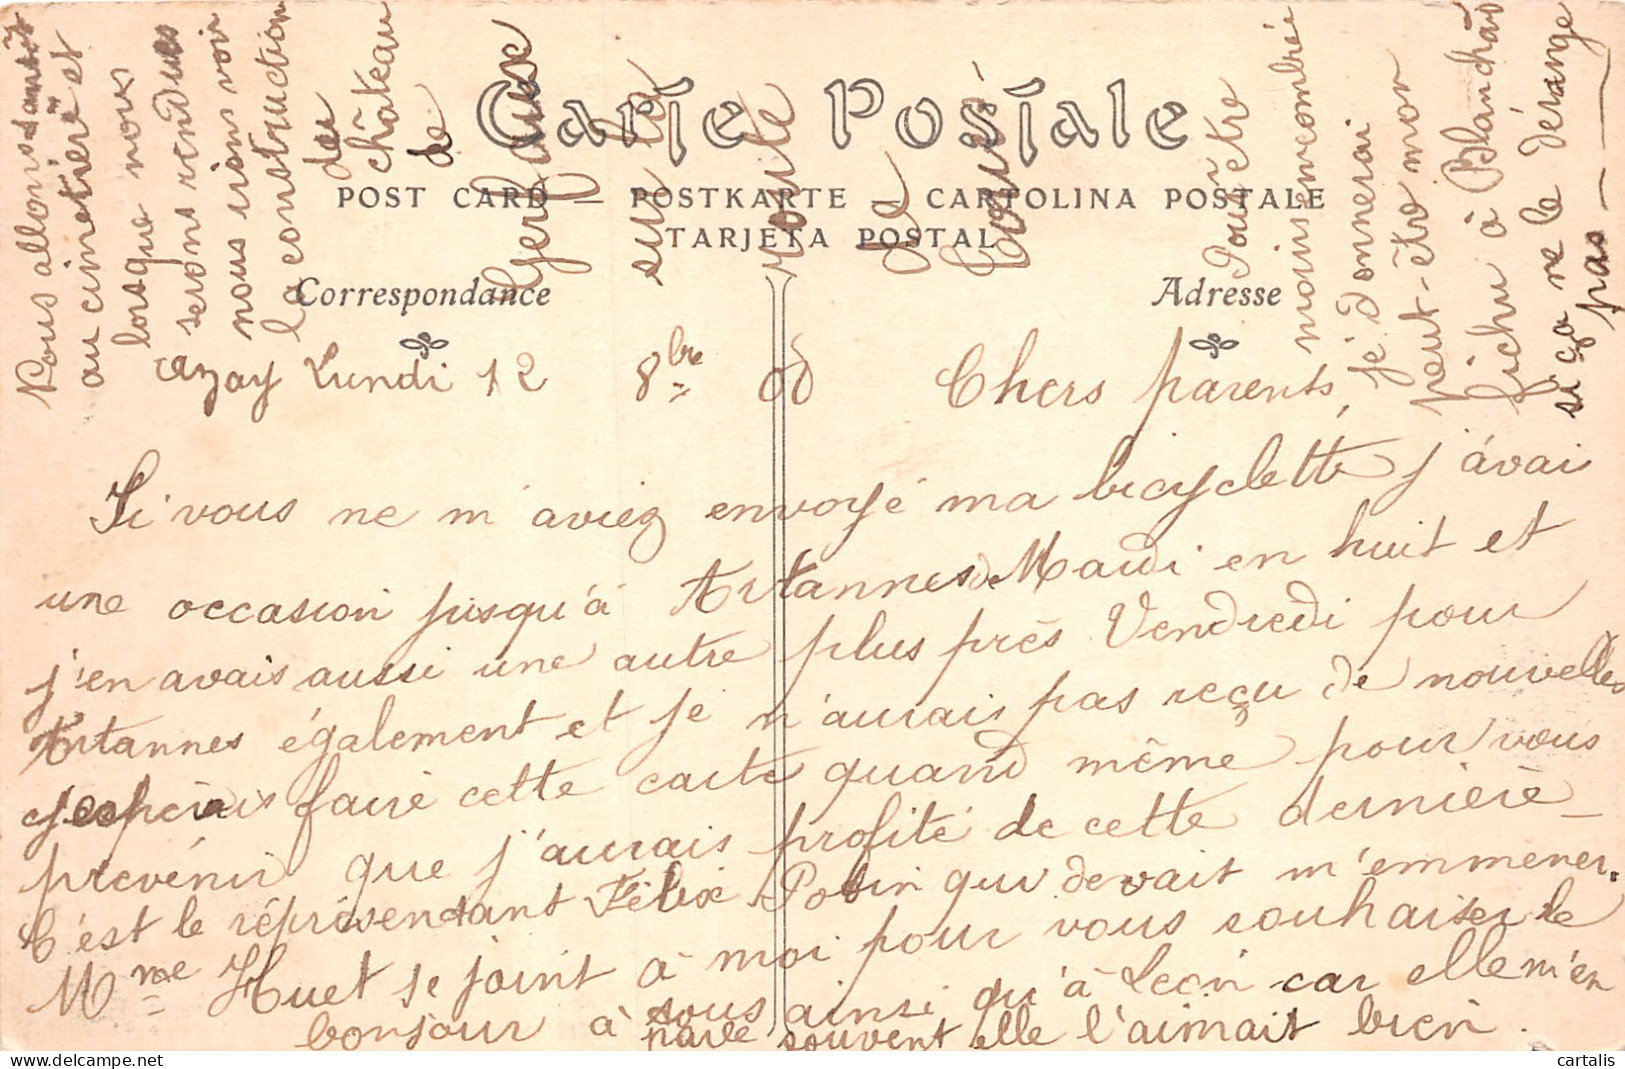 Carte Postale
POST CARD — POSTKARTE — CARTOLINA POSTALE
TARJETA POSTAL
Correspondance
Adresse
Azay Lundi 12 8bre 08
Chers parents,
Si vous ne m'aviez envoyé ma bicyclette j'avai
une occasion jusqu'à Artannes de Mardi en huit et
j'en avais aussi une autre plus près Vendredi pour
Artannes également et je n'aurais pas reçu de nouvelles
j'espérais faire cette carte quand même pour vous
prévenir que j'aurais profité de cette dernière_
C'est le réprésentant Félix Potin qui devait m'emmener.
Mme Huet se joint à moi pour vous souhaiter le
bonjour à vous ainsi qu'à Léon car elle m'en
parle souvent elle l'aimait bien.
Nous allons
au cimetière et
lorsque nous
serons rendues
nous irons voir
la construction
du
château
de
Gerfaux
sur la
route
de
Pouêtre
moins encombrée
je donnerai
peut-être mon
fichu à Blanchard
si ça ne le dérange
pas —
cartalis